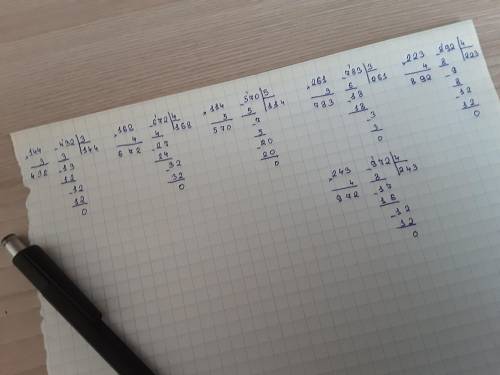 ×144
3
432
-432 | 3
3 | 144
-13
12
-12
12
0
×168
4
672
-672 | 4
4 | 168
-27
24
-32
32
0
×114
5
570
-570 | 5
5 | 114
-7
5
-20
20
0
×261
3
783
-783 | 3
6 | 261
-18
18
-3
3
0
×223
4
892
-892 | 4
8 | 223
-9
8
-12
12
0
×243
4
972
-972 | 4
8 | 243
-17
16
-12
12
0